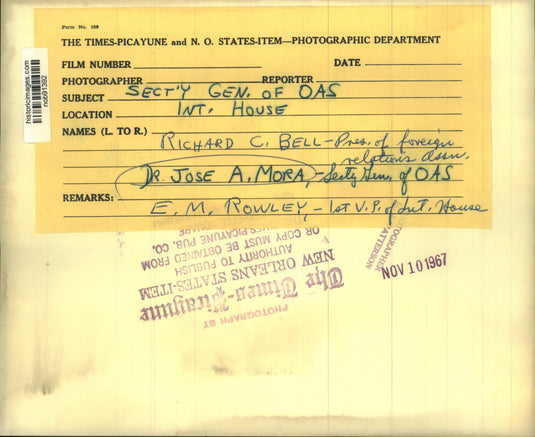 Form No. 108
THE TIMES-PICAYUNE and N. O. STATES-ITEM—PHOTOGRAPHIC DEPARTMENT
FILM NUMBER DATE
PHOTOGRAPHER REPORTER
SUBJECT SECT'Y GEN. OF OAS
LOCATION INT. HOUSE
NAMES (L. TO R.)
RICHARD C. BELL - Pres. of foreign
relations assn.
DR. JOSE A. MORA, - Secty Gen. of OAS
REMARKS:
E. M. ROWLEY, - 1st V.P. of Int. House
historicimages.com
nob91392
PHOTOGRAPH BY
The Times-Picayune
NEW ORLEANS STATES-ITEM
AUTHORITY TO PUBLISH
OR COPY MUST BE OBTAINED FROM
PICAYUNE PUB. CO.
PHOTOGRAPHER
PATTERSON
NOV 10 1967